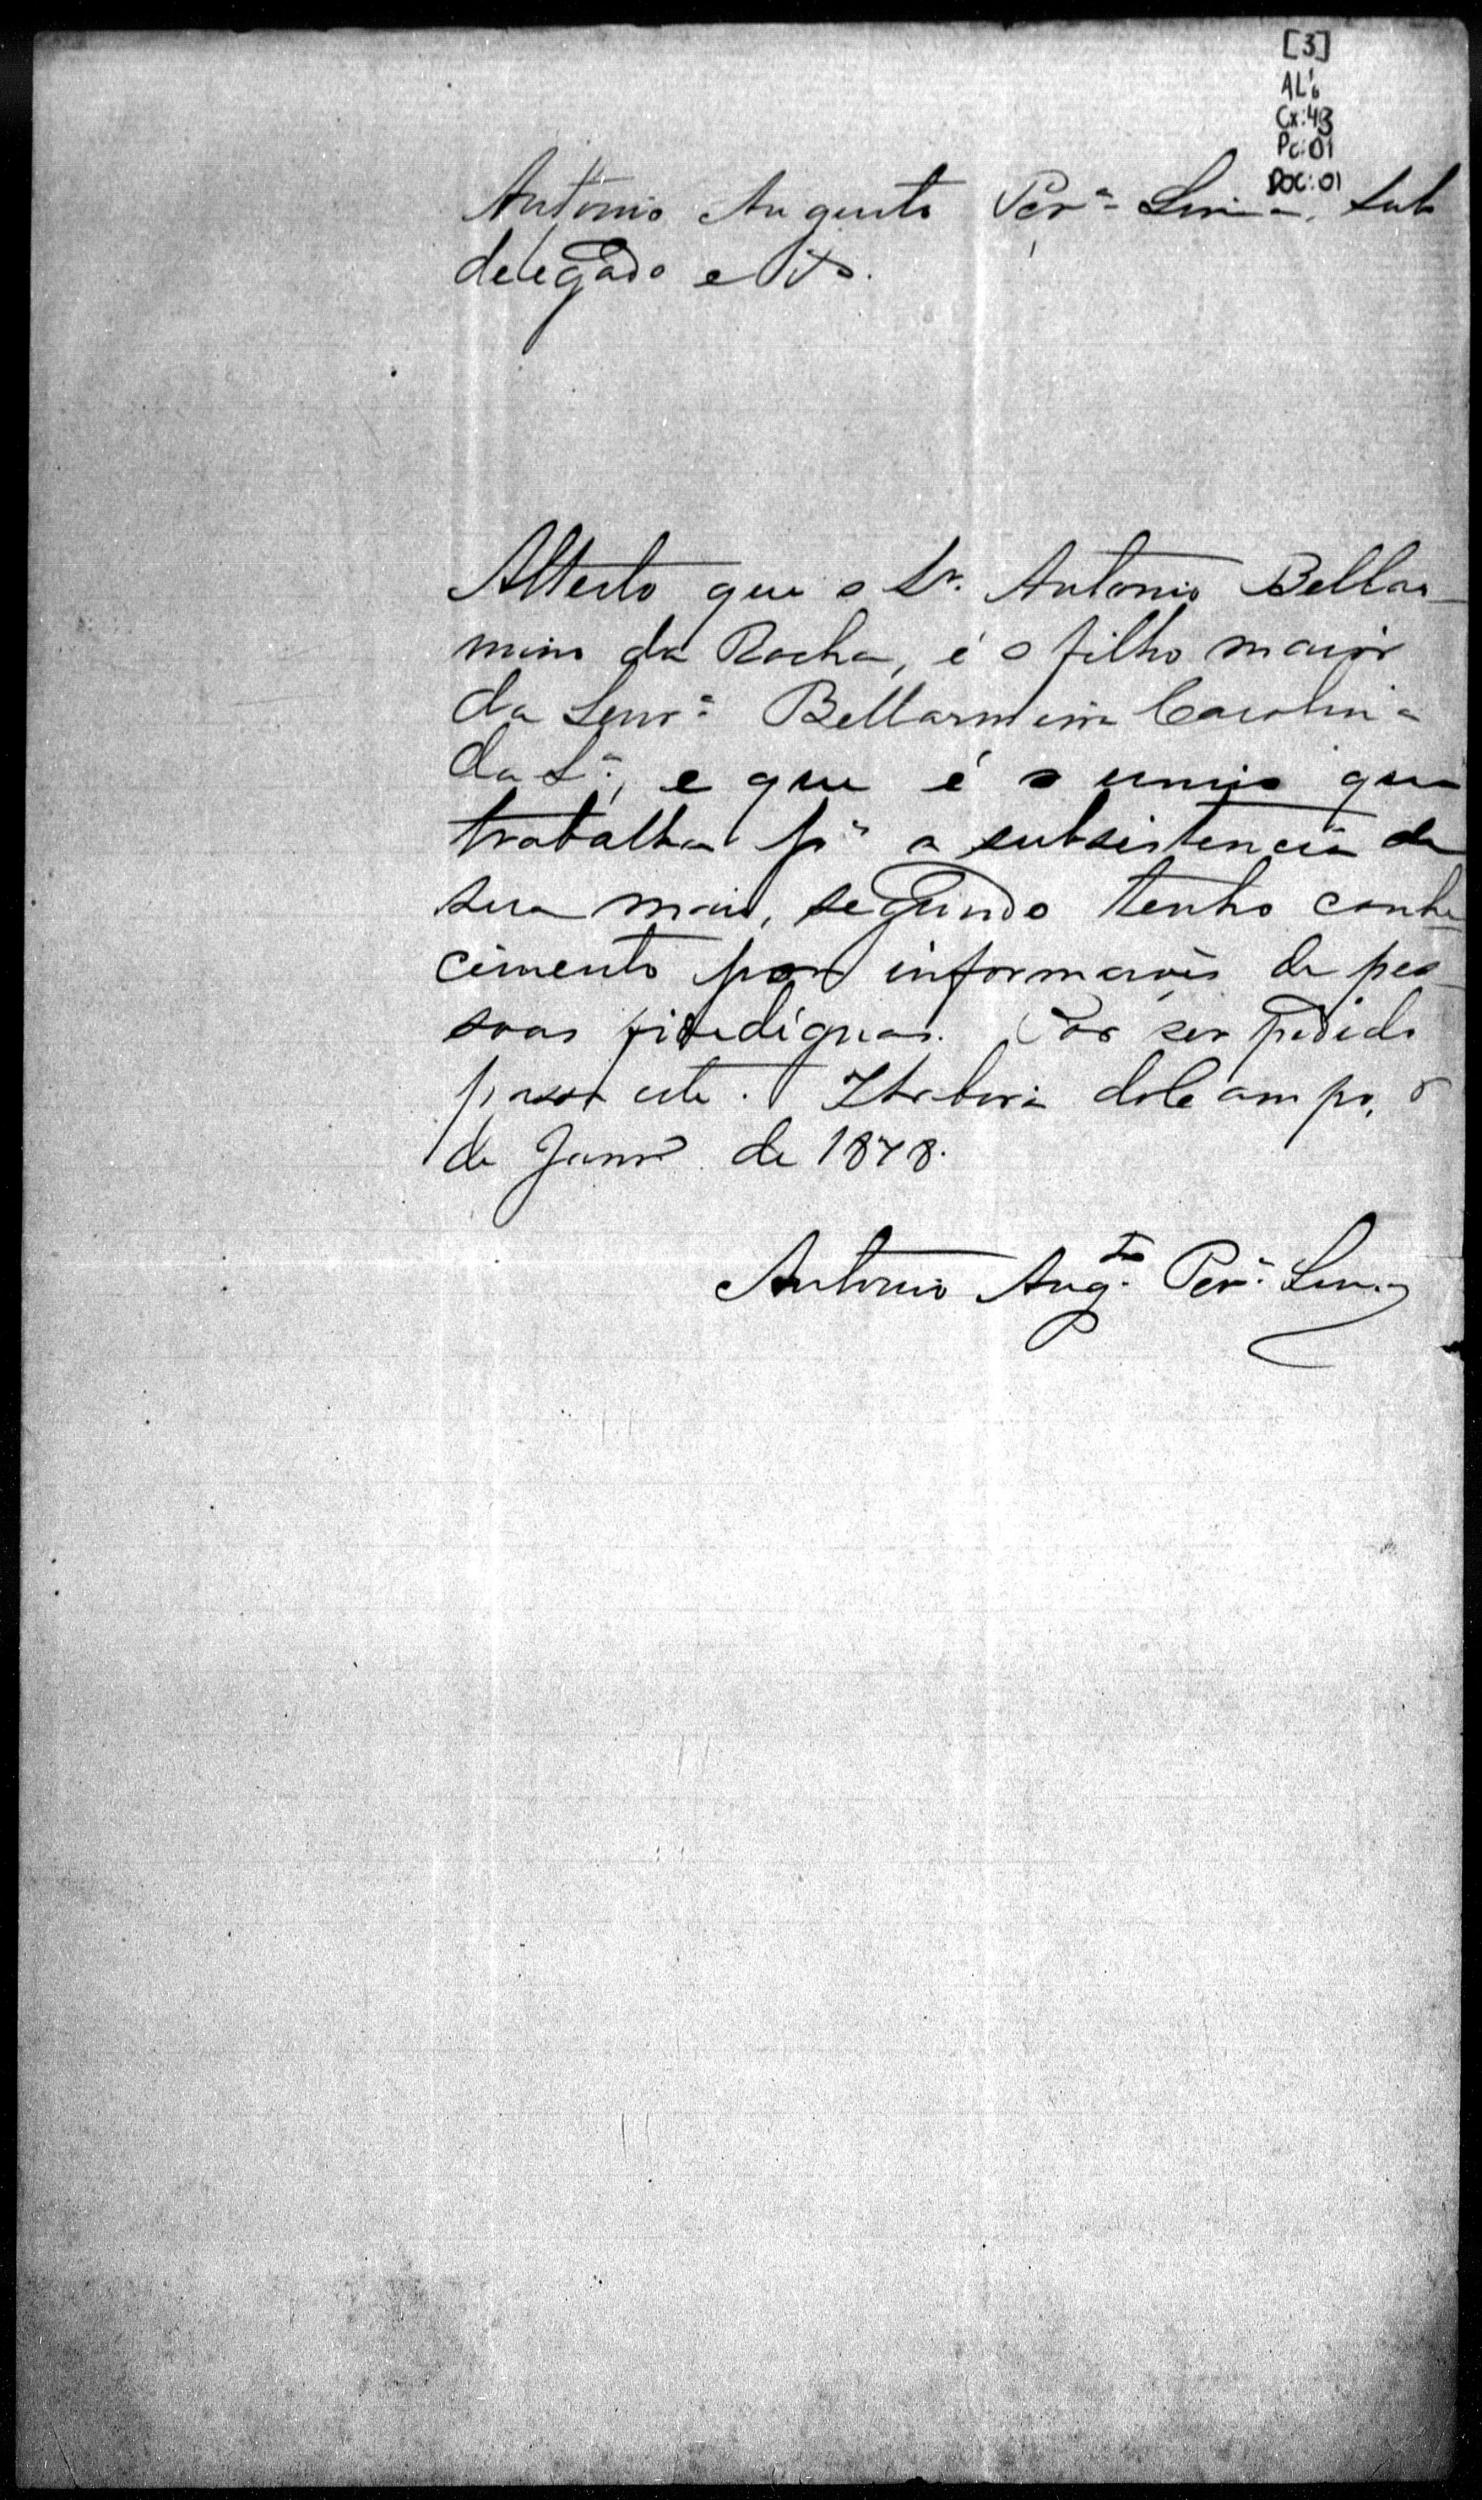 [3]
AL6
Cx:43
Pc:01
DOC:01
Antonio Augusto Perª Lima, Sub
delegado e
Attesto que o Sr. Antonio Bellar-
mino da Rocha, é o filho maior
da Senrª Bellarmina Carolina
da Sª, e que é o unico que
trabalha pª a subsistencia de
sua mai, segundo tenho conhe-
cimento por informações de pes-
soas fidedignas. Por ser pedido
passo este. do Campo,
de Janrº de 1878.
Antonio Augto Perª Lima